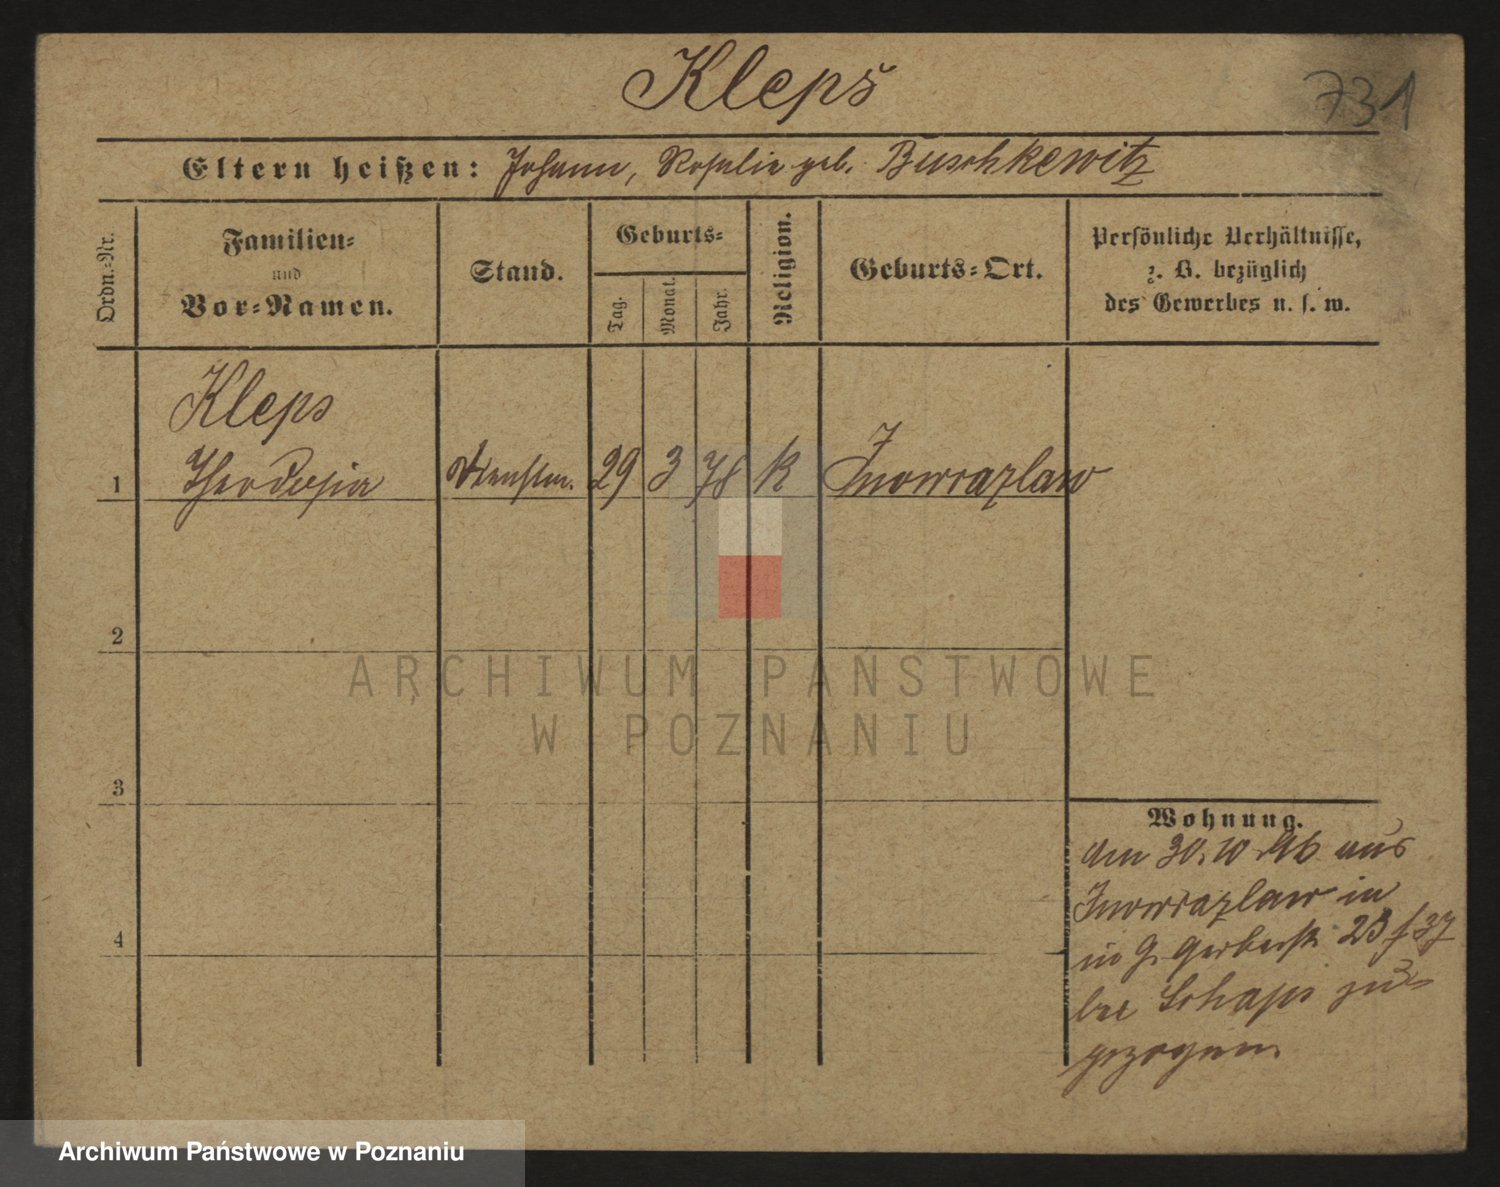 Kleps
731
Eltern heißen: Johann, Rosalie geb. Buschkewitz
Ordn.=Nr.
Familien=
und
Vor=Namen.
Stand.
Geburts=
Tag.
Monat.
Jahr.
Religion.
Geburts=Ort.
Persönliche Verhältnisse,
z. B. bezüglich
des Gewerbes u. s. w.
Kleps
1 Theodosia Dienstm. 29 3 78 k Inowrazlaw
2
ARCHIWUM PAŃSTWOWE
W POZNANIU
3
4
Wohnung.
Am 30.10.96 aus
Inowrazlaw in
in G. Gerberstr. 23
bei zu=
gezogen.
Archiwum Państwowe w Poznaniu